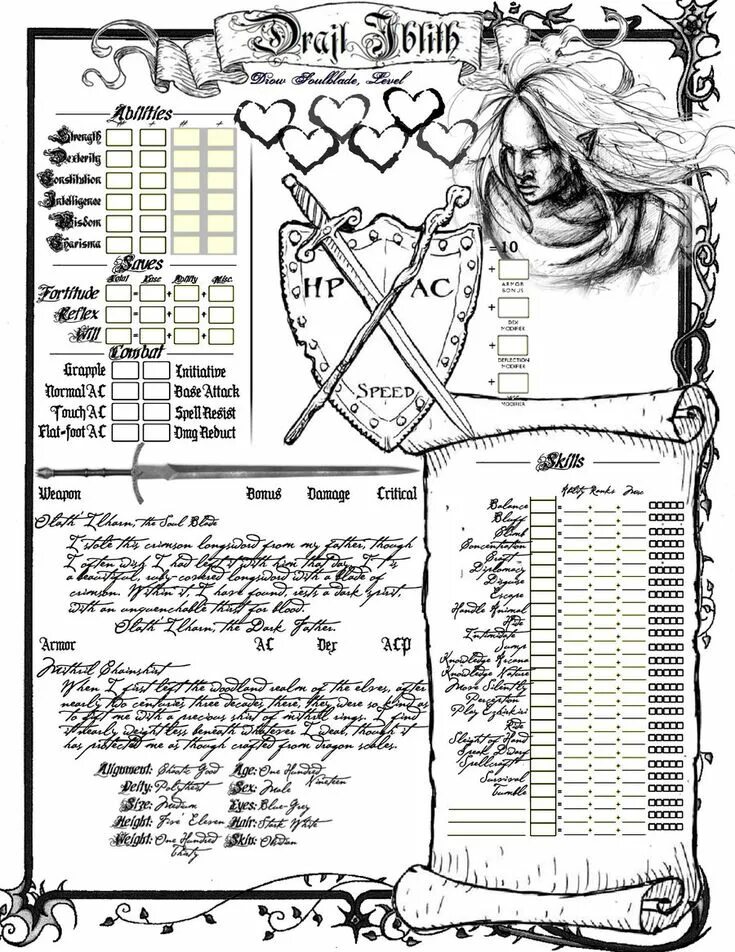 Drajl Iblith
Drow Soulblade, Level
Abilities
# + # +
Strength
Dexterity
Constitution
Intelligence
Wisdom
Charisma
Saves
Total Base Ability Misc.
Fortitude = + +
Reflex = + +
Will = + +
Combat
Grapple Initiative
Normal AC Base Attack
Touch AC Spell Resist
Flat-foot AC Dmg Reduct
HP AC
SPEED
= 10
+
ARMOR
BONUS
+
DEX
MODIFIER
+
DEFLECTION
MODIFIER
+
MODIFIER
Weapon Bonus Damage Critical
Olath Ilharn, the Soul Blade
I stole this crimson longsword from my father, though
I often wish I had left it with him that day. It is
a beautiful, ruby-covered longsword with a blade of
crimson. Within it, I have found, rests a dark spirit,
with an unquenchable thirst for blood.
Olath Ilharn, the Dark Father.
Armor AC Dex ACP
Mithril Chainshirt
When I first left the woodland realm of the elves, after
nearly two centuries three decades there, they were so kind as
to gift me with a precious shirt of mithril rings. I find
it nearly weightless beneath whatever I wear, though it
has protected me as though crafted from dragon scales.
Alignment: Chaotic Good Age: One Hundred
Nineteen
Deity: Polytheist Sex: Male
Size: Medium Eyes: Blue-Grey
Height: Five' Eleven Hair: Stark White
Weight: One Hundred Skin: Obsidian
Thirty
Skills
Ability Ranks Misc
Balance
Bluff
Climb
Concentration
Craft
Diplomacy
Disguise
Escape
Handle Animal
Hide
Intimidate
Jump
Knowledge Arcana
Knowledge Nature
Move Silently
Perception
Play
Ride
Sleight of Hand
Speak D'dary
Spellcraft
Survival
Tumble